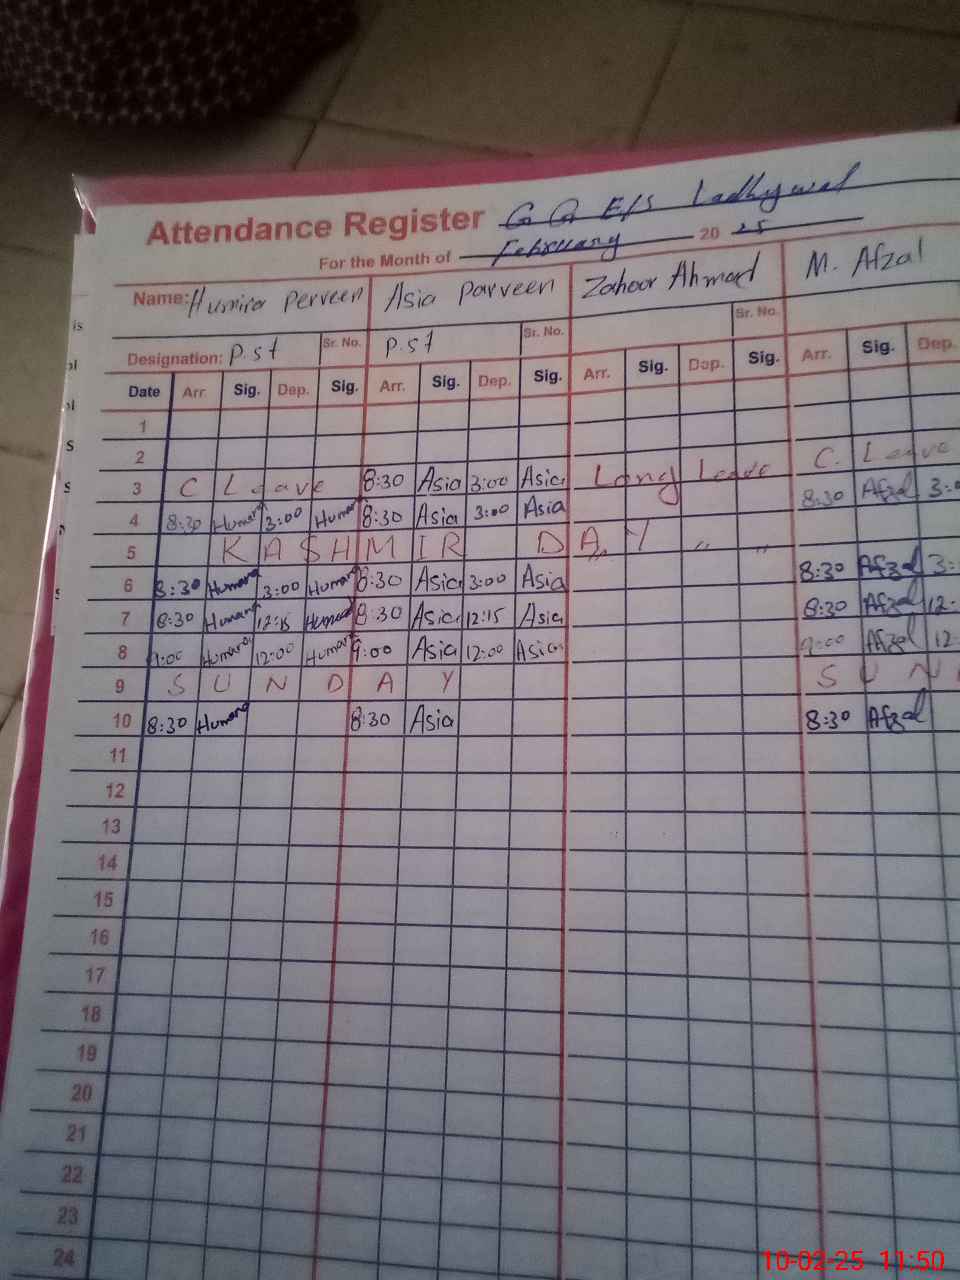 Attendance Register G G E/S Ladhywal
For the Month of February 20 25
Name: Humira Perveen Asia Parveen Zahoor Ahmad M. Afzal
Designation: P.st Sr. No. P.st Sr. No. Sr. No.
Date Arr. Sig. Dep. Sig. Arr. Sig. Dep. Sig. Arr. Sig. Dep. Sig. Arr. Sig. Dep.
1
2
3 C Leave 8:30 Asia 3:00 Asia Long Leave C. Leave
4 8:30 Humara 3:00 Humara 8:30 Asia 3:00 Asia 8:30 Afzal 3:0
5 KASHMIR DAY " " "
6 8:30 Humara 3:00 Humara 8:30 Asia 3:00 Asia 8:30 Afzal 3:
7 8:30 Humara 12:15 Humara 8:30 Asia 12:15 Asia 8:30 Afzal 12:
8 9:00 Humara 12:00 Humara 9:00 Asia 12:00 Asia 9:00 Afzal 12
9 SUNDAY SUN
10 8:30 Humara 8:30 Asia 8:30 Afzal
11
12
13
14
15
16
17
18
19
20
21
22
23
24
is
S
S
10-02-25 11:50